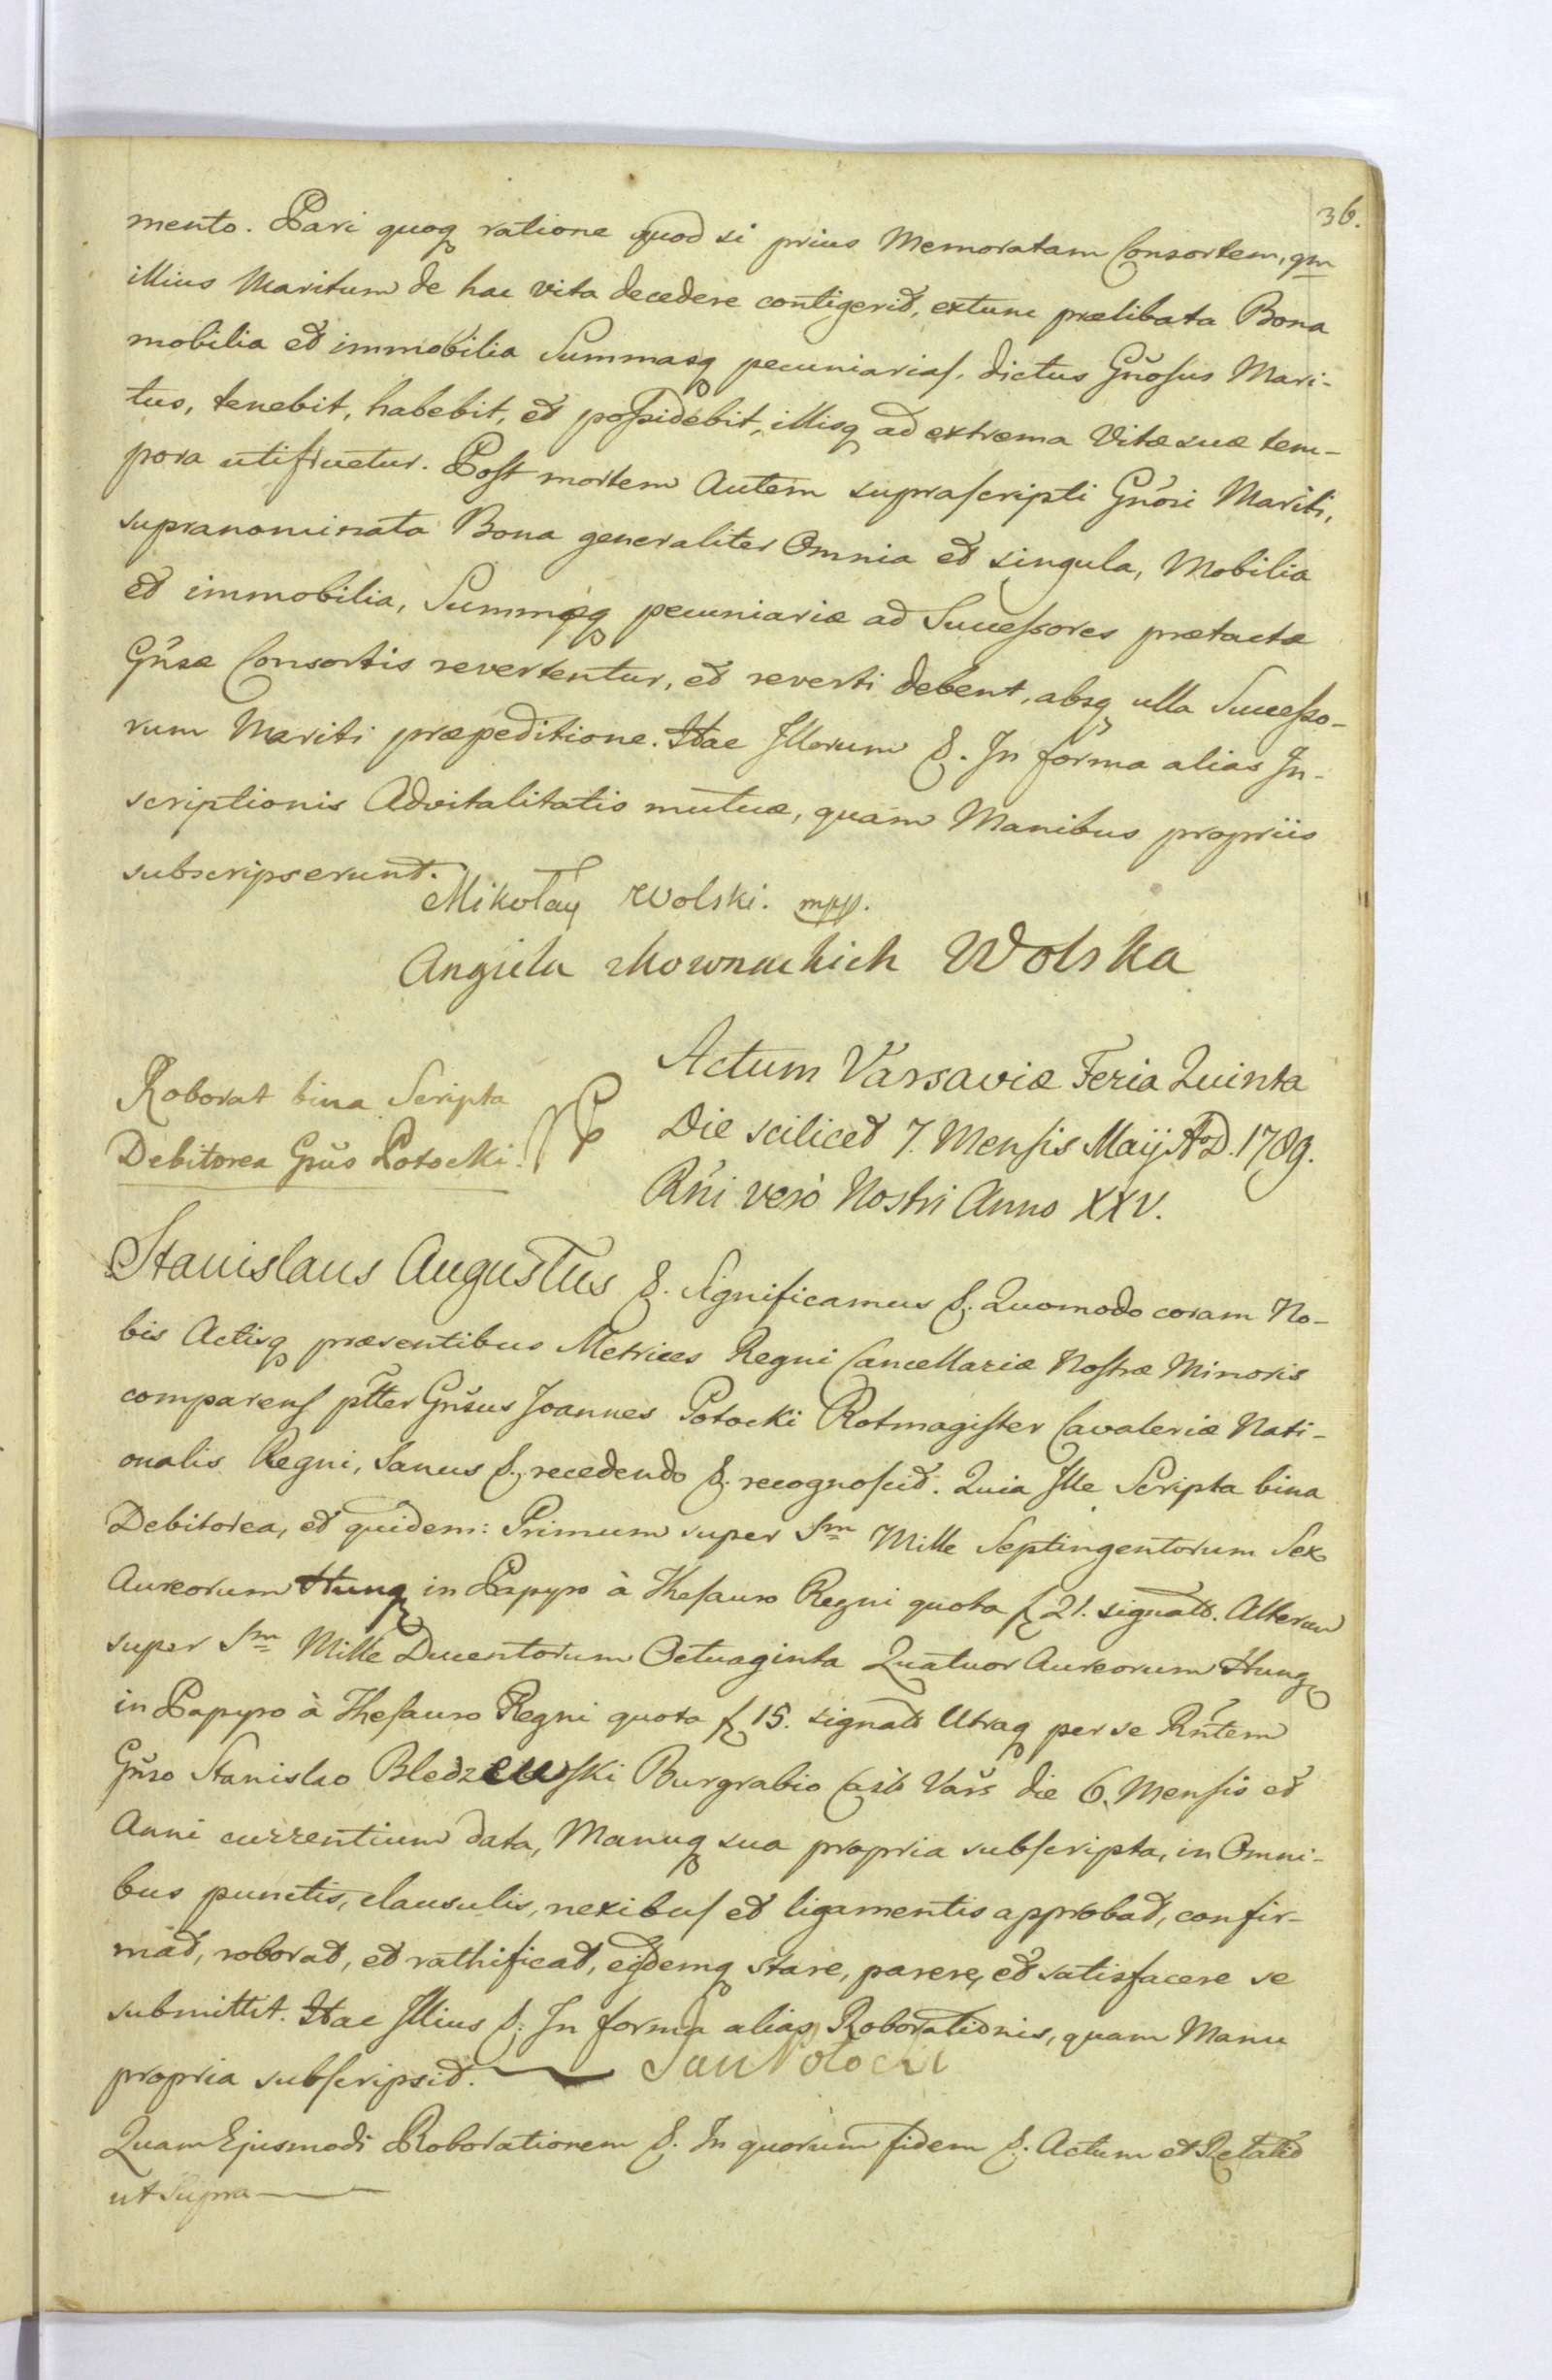 36.
mento. Pari quoq ratione quod si prius Memoratam Consortem, qm
illius Maritum de hac vita decedere contigerit, extunc prælibata Bona
mobilia et immobilia Summasq pecuniarias, dictus Gnosus Mari-
tus, tenebit, habebit, et possidebit, illisq ad extrema Vitæ suæ tem-
pora utifruetur. Post mortem Autem suprascripti Gnosi Mariti,
supranominata Bona generaliter Omnia et singula, Mobilia
et immobilia, Summæq pecuniariæ ad Successores prætactæ
Gnsæ Consortis revertentur, et reverti debent, absq ulla Successo-
rum Mariti præpeditione. Hac Illorum &. In forma alias In-
scriptionis Advitalitatis mutuæ, quam Manibus propriis
subscripserunt.
Mikołay Wolski. mpp.
Angiela Wolska
Roborat bina Scripta
Debitorea Gnus Potocki.
Actum Varsaviæ Feria Quinta
Die scilicet 7. Mensis Maij A.D. 1789.
Rni verò Nostri Anno XXV.
Stanislaus Augustus &. Significamus &. Quomodo coram No-
bis Actisq præsentibus Metrices Regni Cancellariæ Nostræ Minoris
comparens ptter Gnsus Joannes Potocki Rotmagister Cavaleriæ Nati-
onalis Regni, Sanus &. recedendo &. recognoscit. Quia Ille Scripta bina
Debitorea, et quidem: Primum super Sm Mille Septingentorum Sex
Aureorum Hung in Papyro à Thesauro Regni quota f 21. signato. Alterum
super Sm Mille Ducentorum Octuaginta Quatuor Aureorum Hung
in Papyro à Thesauro Regni quota f 15. signato Utraq per se Rntem
Gnso Stanislao Bledzewski Burgrabio Casts Vars die 6. Mensis et
Anni currentium data, Manuq sua propria subscripta, in Omni-
bus punctis, clausulis, nexibus et ligamentis approbat, confir-
mat, roborat, et rathificat, eisdemq stare, parere, et satisfacere se
submittit. Hac Illius &. In forma alias Roborationis, quam Manu
propria subscripsit. Jan Potocki
Quam Ejusmodi Roborationem &. In quorum fidem &. Actum et Relatio
ut Supra